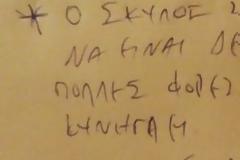 * Ο ΣΚΥΛΟΣ
ΝΑ ΕΙΝΑΙ ΔΕ
ΠΟΛΛΕΣ ΦΟΡΕΣ
ΚΥΝΗΓΑΕΙ